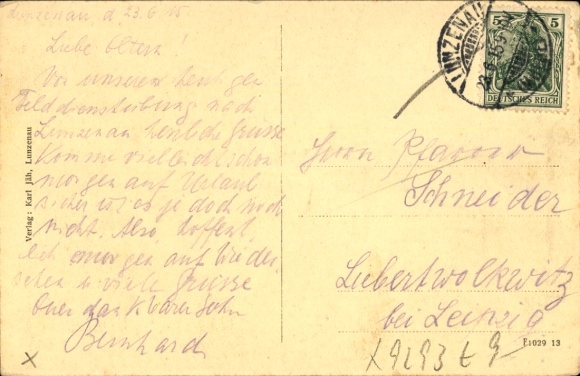 Lunzenau, d. 23.6.15.
Liebe Eltern!
Von unserer heutigen
Felddienstübung nach
Lunzenau herzliche Grüsse
Komme vielleicht schon
morgen auf Urlaub
sicher ist es jedoch noch
nicht. Also hoffent
lich morgen auf Wieder
sehen u viele Grüsse
Euer dankbarer Sohn
Bernhard
Verlag: Karl Jäh, Lunzenau
LUNZENAU
5 5
DEUTSCHES REICH
Herrn Pfarrer
Schneider
Liebertwolkwitz
bei Leipzig
E1029 13